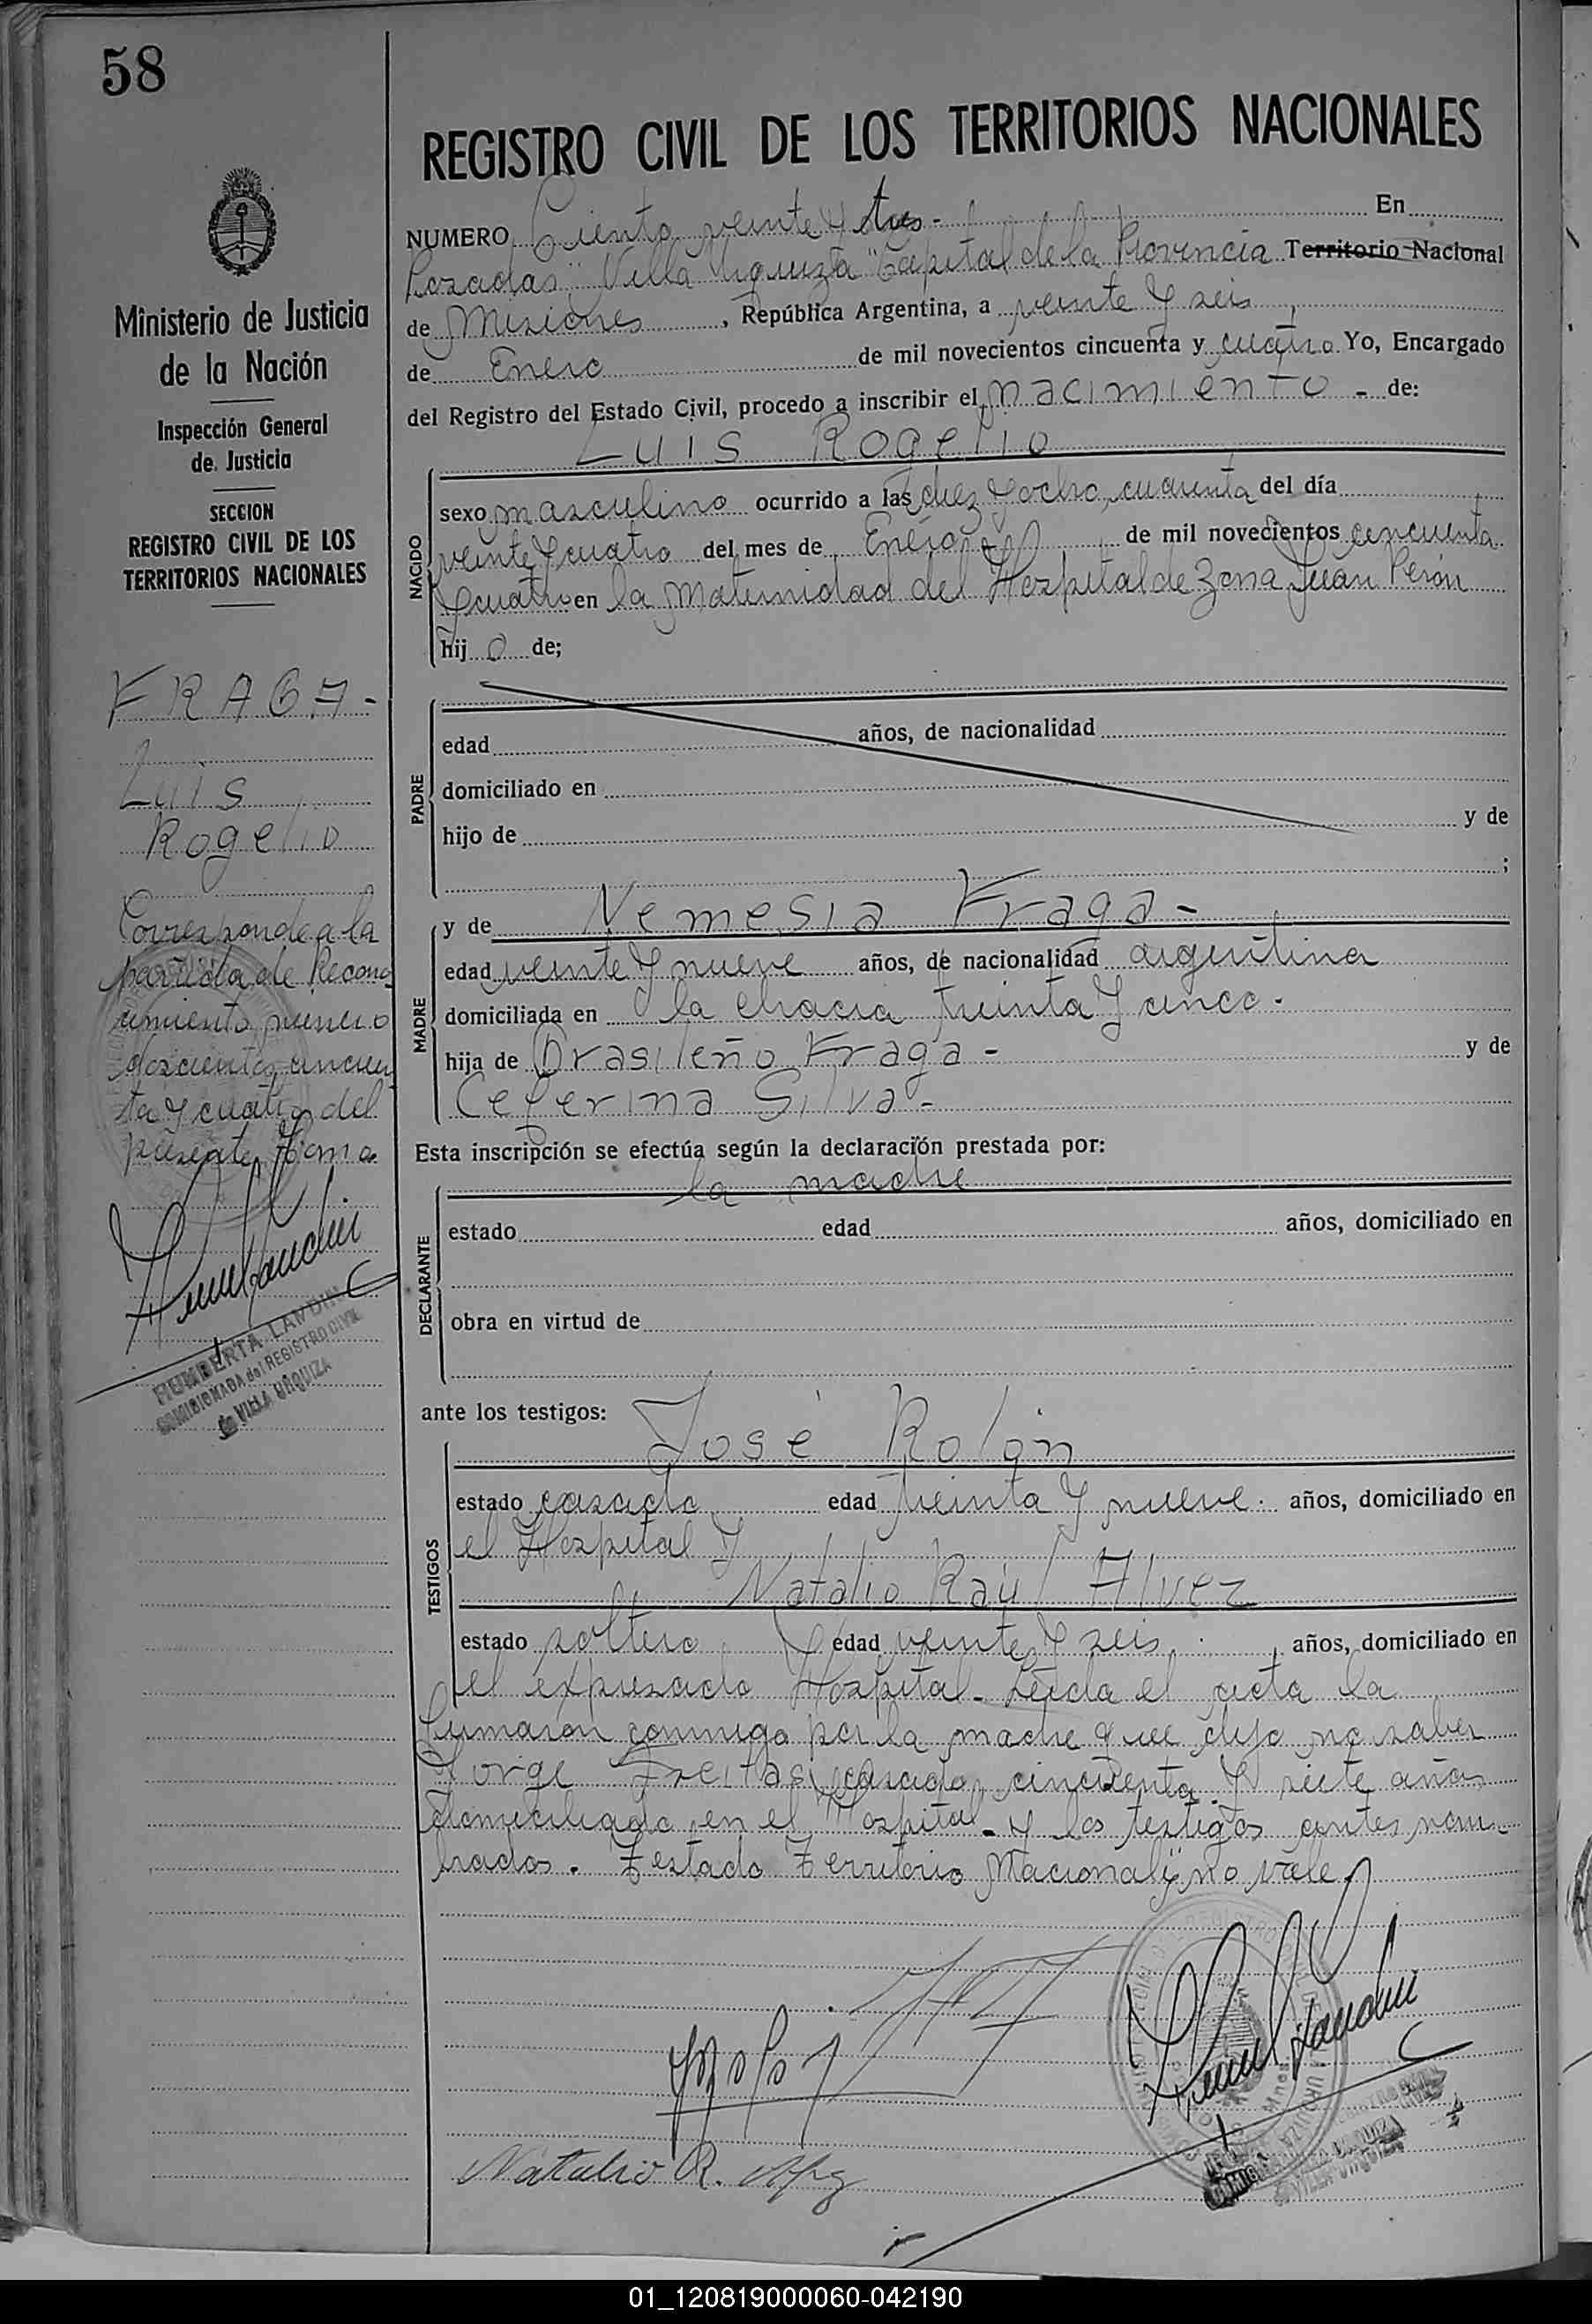 58
REGISTRO CIVIL DE LOS TERRITORIOS NACIONALES
NUMERO Ciento veinte y tres- En
Posadas "Villa Urquiza" Capital de la Provincia Territorio Nacional
de Misiones, República Argentina, a veinte y seis
de Enero de mil novecientos cincuenta y cuatro Yo, Encargado
del Registro del Estado Civil, procedo a inscribir el nacimiento - de:
Luis Rogelio
NACIDO
sexo masculino ocurrido a las diez y ocho, cuarenta del día
veinte y cuatro del mes de Enero de mil novecientos cincuenta
y cuatro en la Maternidad del Hospital de Zona Juan Perón
hij o de;
PADRE
edad años, de nacionalidad
domiciliado en
hijo de y de
;
MADRE
y de Nemesia Fraga-
edad veinte y nueve años, de nacionalidad argentina
domiciliada en la chacra treinta y cinco-
hija de Brasileño Fraga- y de
Ceferina Silva-
Esta inscripción se efectúa según la declaración prestada por:
la madre
DECLARANTE
estado edad años, domiciliado en
obra en virtud de
ante los testigos:
José Rolón
TESTIGOS
estado casado edad treinta y nueve. años, domiciliado en
el Hospital y
Natalio Raúl Alvez
estado soltero y edad veinte y seis años, domiciliado en
el expresado Hospital- Leída el acta la
firmaron conmigo por la madre que dijo no saber
Jorge Freitas, casado, cincuenta y siete años
domiciliado en el Hospital- y los testigos antes nom-
brados. Testado Territorio Nacional "no vale"
Natalio R.
Ministerio de Justicia
de la Nación
Inspección General
de Justicia
SECCION
REGISTRO CIVIL DE LOS
TERRITORIOS NACIONALES
FRAGA-
Luis
Rogelio
Corresponde a la
partida de Recono
cimiento número
doscientos cincuen
ta y cuatro del
presente Tomo
HUMBERTA LANDIN
COMISIONADA del REGISTRO CIVIL
de VILLA URQUIZA
01_120819000060-042190